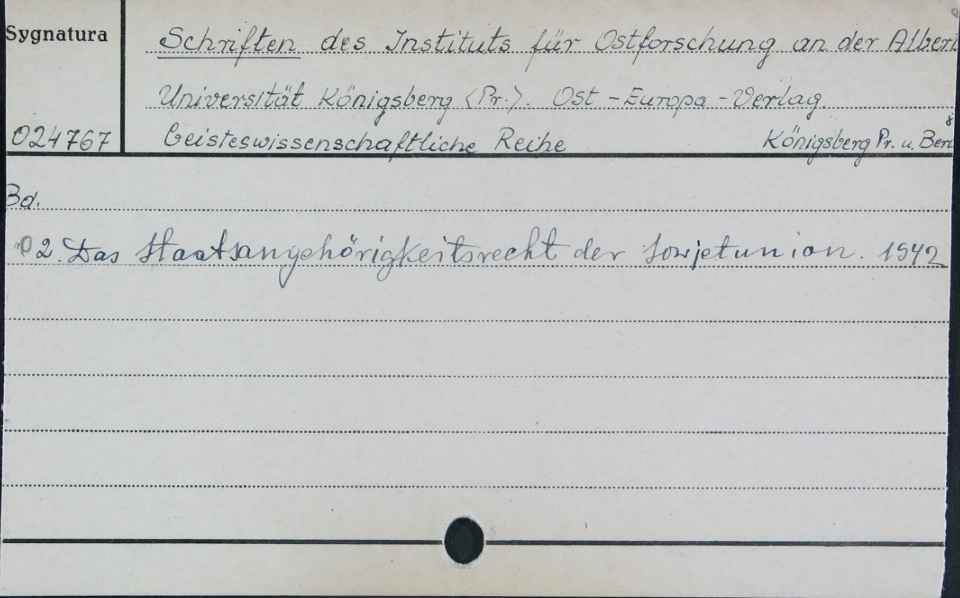 Sygnatura
Schriften des Instituts für Ostforschung an der Albert
Universität Königsberg <Pr.>. Ost-Europa-Verlag
024767 Geisteswissenschaftliche Reihe Königsberg Pr. u. Berl
Bd.
2. Das Staatsangehörigkeitsrecht der Sowjetunion. 1942